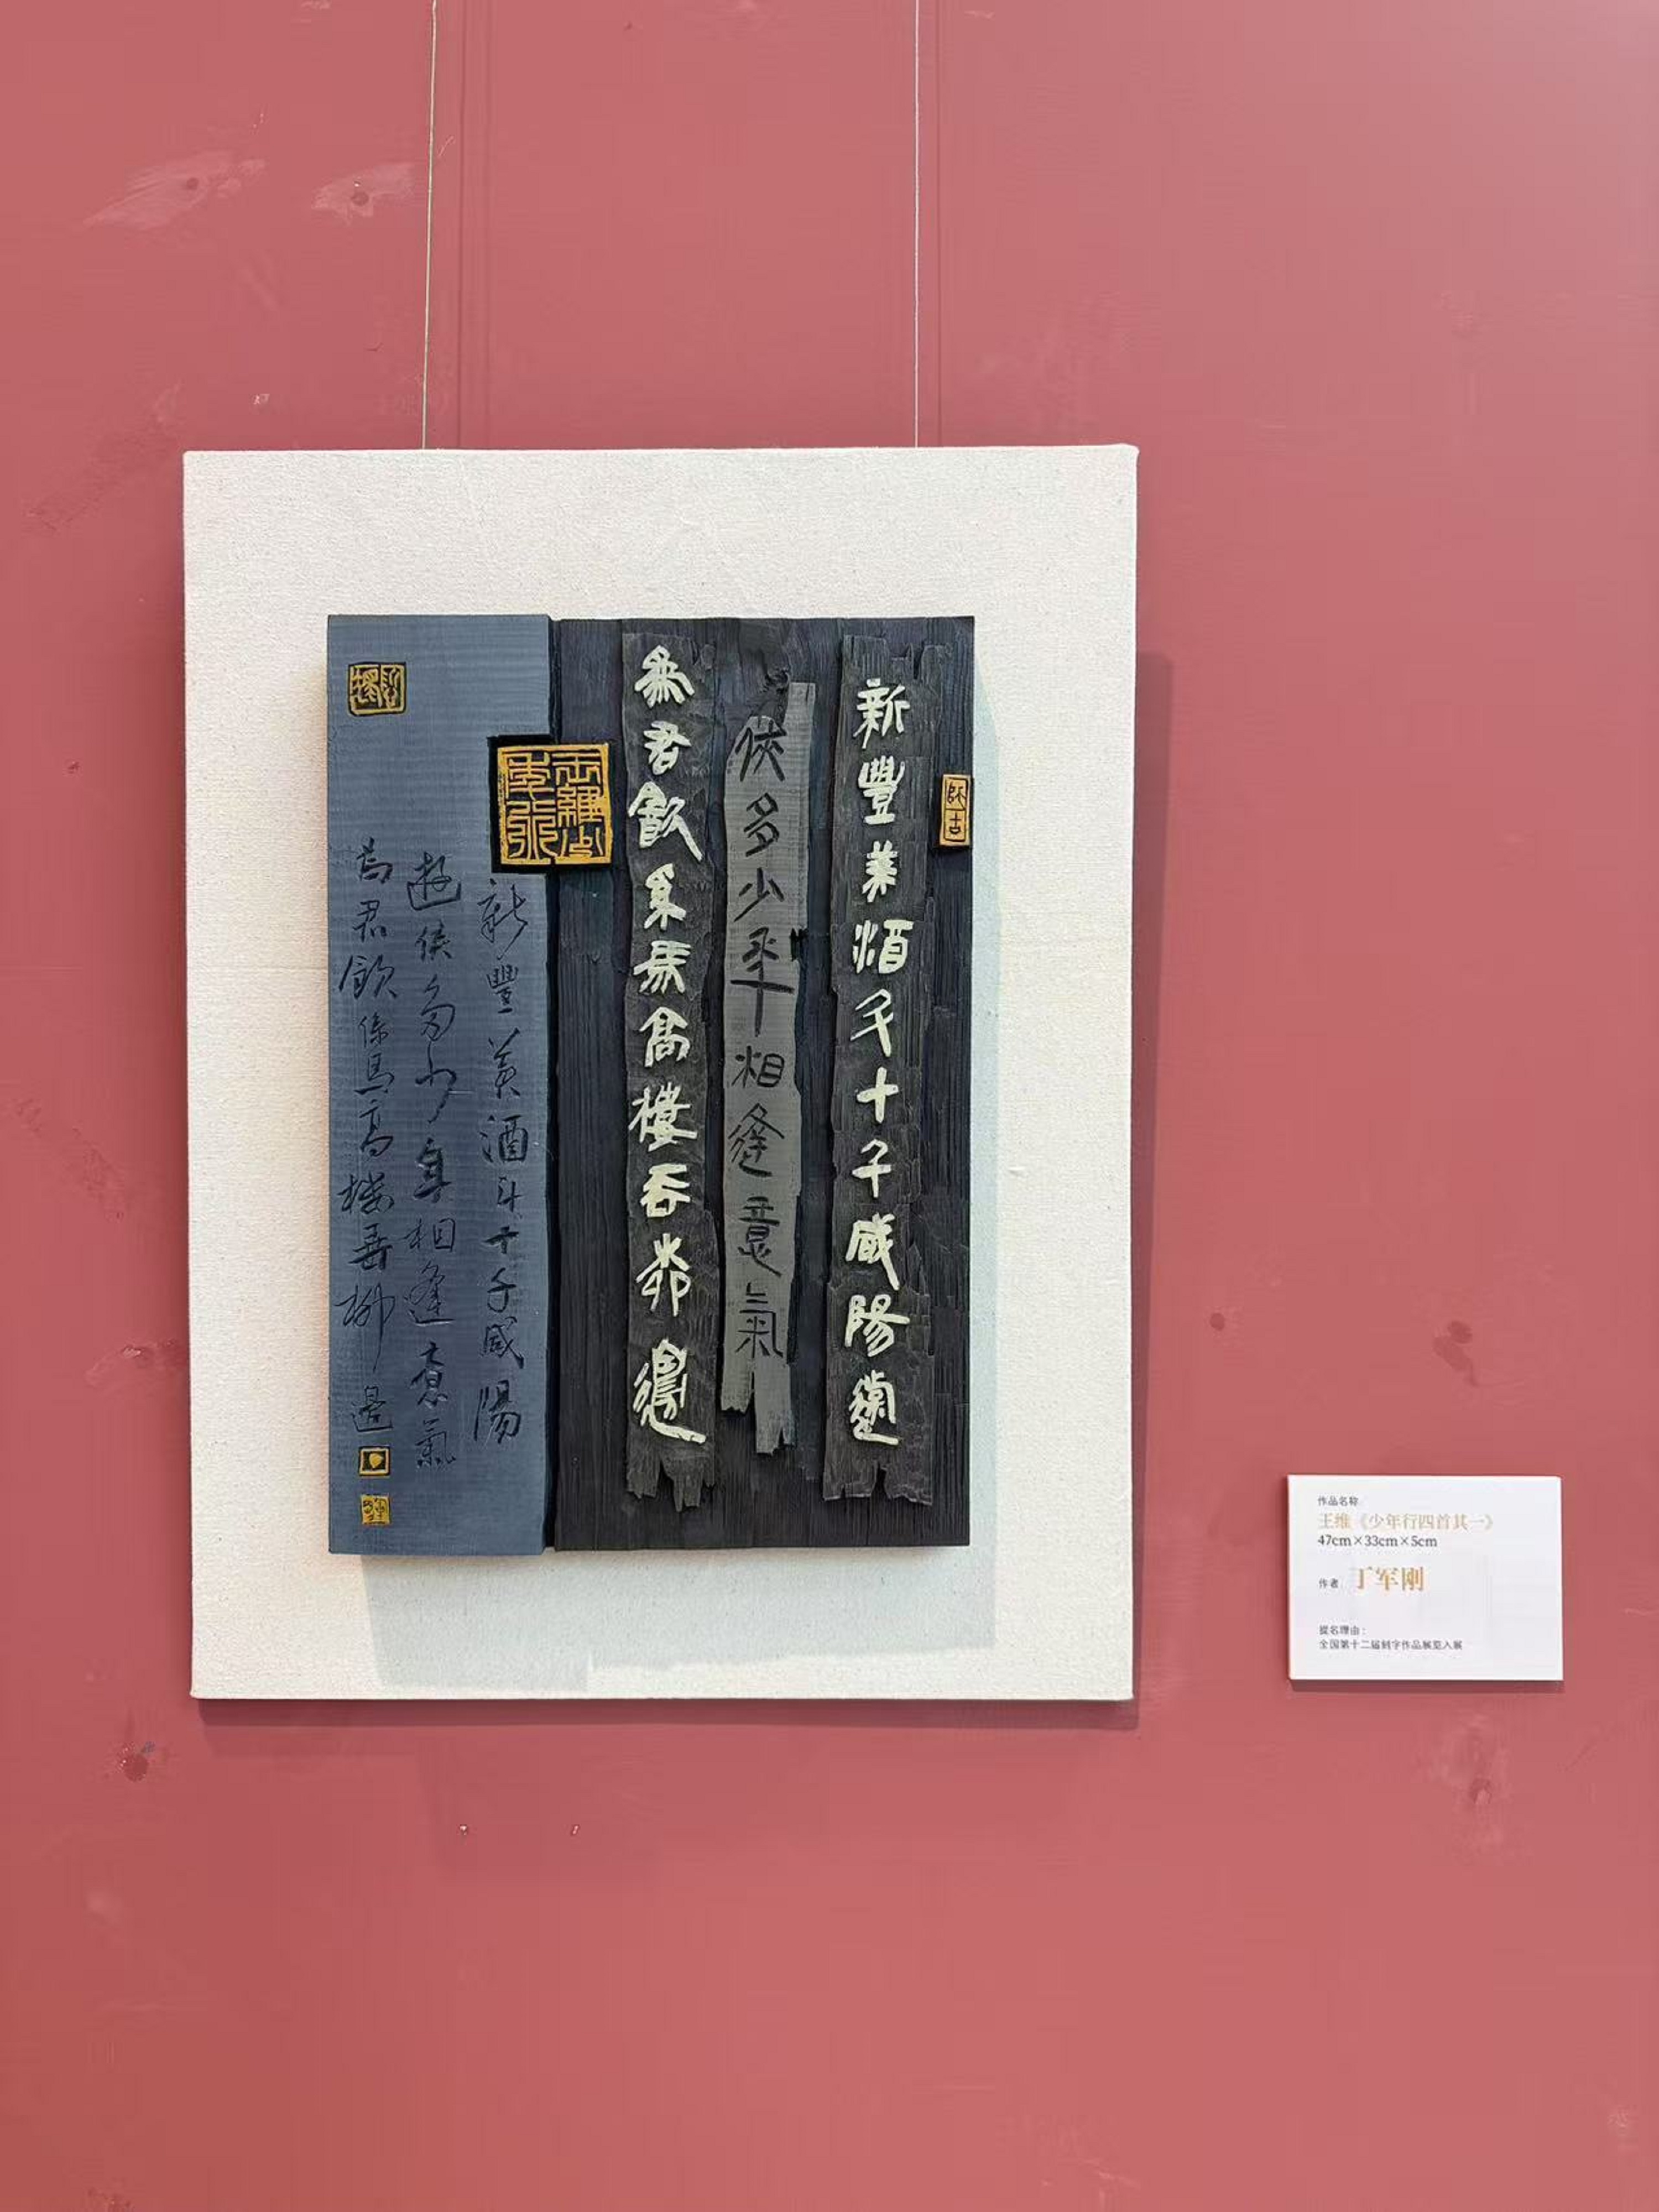 師古
新豐美酒斗十千咸陽遊
俠多少年相逢意氣
為君飲系馬高樓垂柳邊
王維少年行
新豐美酒斗十千咸陽
遊俠多少年相逢意氣
為君飲係馬高樓垂柳邊
作品名称:
王维《少年行四首其一》
47cm×33cm×5cm
作者: 丁军刚
提名理由:
全国第十二届刻字作品展览入展